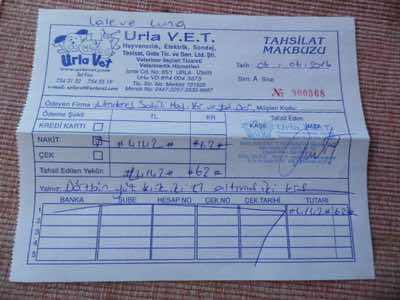 Lale ve Luna
Urla V.E.T.
Hayvancılık, Elektrik, Sondaj,
Tesisat, Gıda Tic. ve San. Ltd. Şti.
Veteriner Sağlık Ticareti
Veterinerlik Hizmetleri
Urla Vet
TAHSİLAT
MAKBUZU
Tarih
Seri: A Sıra
№ 000368
Tel Fax
754 31 32
Ödeyen Firma
Müşteri Kodu:
Ödeme Şekli TL KR
Tahsil Eden
KAŞE İMZA
KREDİ KARTI
NAKİT #4142# #62#
ÇEK
Tahsil Edilen Yekün #4142# #62#
Yalnız: Dörtbin yüz kırk iki TL altmış iki krş
BANKA ŞUBE HESAP NO ÇEK.NO ÇEK.TARİHİ TUTARI
#4142#62#